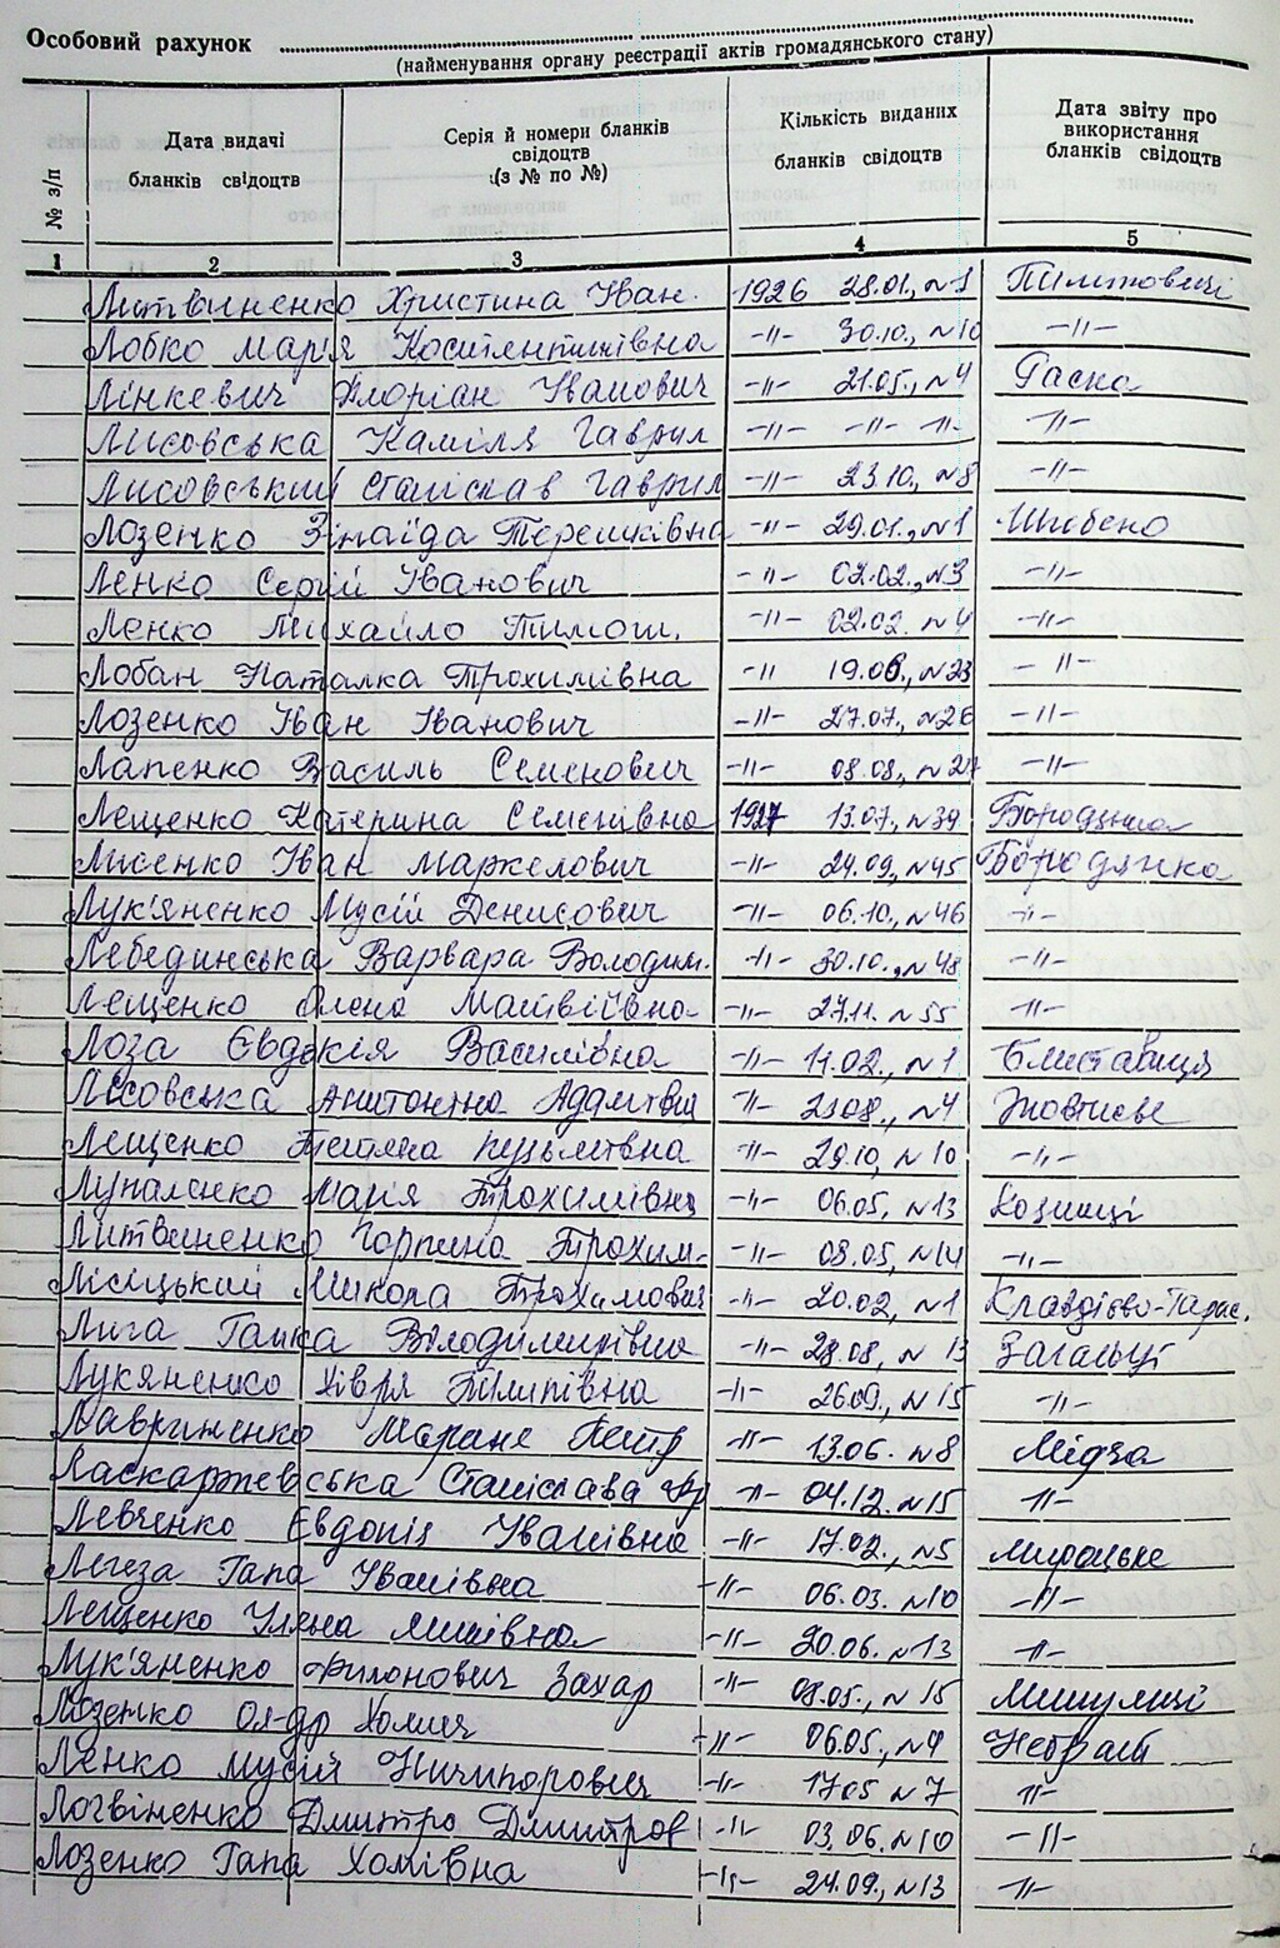 Особовий рахунок
(найменування органу реєстрації актів громадянського стану)
№ з/п
Дата видачі бланків свідоцтв
Серія й номери бланків свідоцтв (з № по №)
Кількість виданих бланків свідоцтв
Дата звіту про використання бланків свідоцтв
1 2 3 4 5
Литвиненко Христина Іван. 1926 28.01., №1 Пилиповичі
Лобко Мар'я Костянтинівна -"- 30.10., №10 -"-
Лінкевич Флоріан Іванович -"- 21.05., №4 Гаска
Лисовська Каміля Гаврил -"- -"- -"- -"-
Лисовський Станіслав Гаврил -"- 23.10., №8 -"-
Лозенко Зінаїда Терешківна -"- 29.01., №1 Шибено
Ленко Сергій Іванович -"- 02.02., №3 -"-
Ленко Михайло Тимош. -"- 02.02. №4 -"-
Лобан Наталка Трохимівна -" 19.06., №23 -"-
Лозенко Іван Іванович -"- 27.07., №26 -"-
Лапенко Василь Семенович -"- 08.08., №27 -"-
Лещенко Катерина Семенівна 1927 13.07., №39 Бородянка
Лисенко Іван Маркелович -"- 24.09., №45 Бородянка
Лук'яненко Мусій Денисович -"- 06.10., №46 -"-
Лебединська Варвара Володим. -"- 30.10., №48 -"-
Лещенко Олена Матвіївна -"- 27.11. №55 -"-
Лоза Євдокія Василівна -"- 11.02., №1 Блиставиця
Лісовська Антоніна Адамівна -"- 23.08., №4 Жовтневе
Лещенко Тетяна Кузьмівна -"- 29.10, №10 -"-
Лупаленко Марія Трохимівна -"- 06.05, №13 Козинці
Литвиненко Горпина Трохим. -"- 08.05, №14 -"-
Лісіцький Микола Трохимович -"- 20.02, №1 Клавдієво-Тарас.
Лига Ганка Володимирівна -"- 28.08, №13 Загальці
Лукяненко Хівря Пилипівна -"- 26.09., №15 -"-
Лавриненко Маряна Петр -"- 13.06. №8 Мідча
Ласкаржевська Станіслава Фр -"- 04.12. №15 -"-
Левченко Євдокія Іванівна -"- 17.02., №5 Мироцьке
Легеза Гапа Іванівна -"- 06.03. №10 -"-
Лещенко Уляна Минівна -"- 20.06. №13 -"-
Лук'яненко Филонович Захар -"- 08.05., №15 Микуличі
Лозенко Ол-др Хомич -"- 06.05., №4 Небрат
Ленко Мусій Ничипорович -"- 17.05 №7 -"-
Логвіненко Дмитро Дмитров -"- 03.06. №10 -"-
Лозенко Гапа Хомівна -"- 24.09., №13 -"-